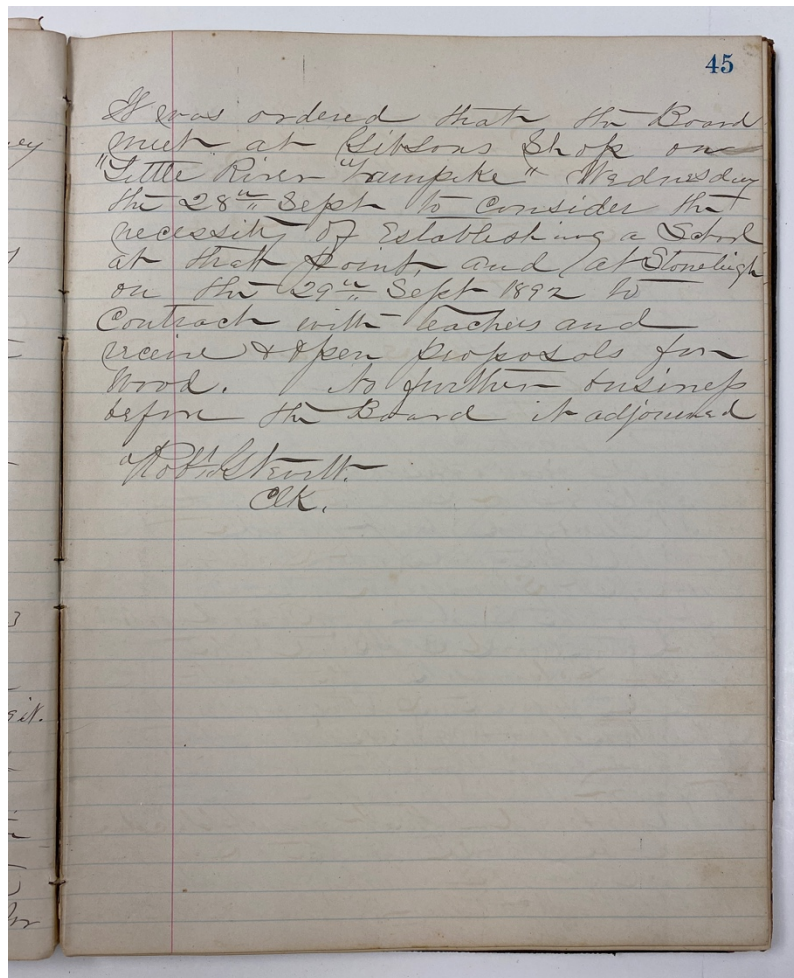 45
It was ordered that the Board
meet at Gibsons Shop on
"Little River Turnpike" Wednesday
the 28" Sept to consider the
necessity of Establishing a School
at that point, and at Stoneleigh
on the 29" Sept 1892 to
Contract with teachers and
receive & open proposals for
Wood. No further business
before the Board it adjourned
Robt
Clk.